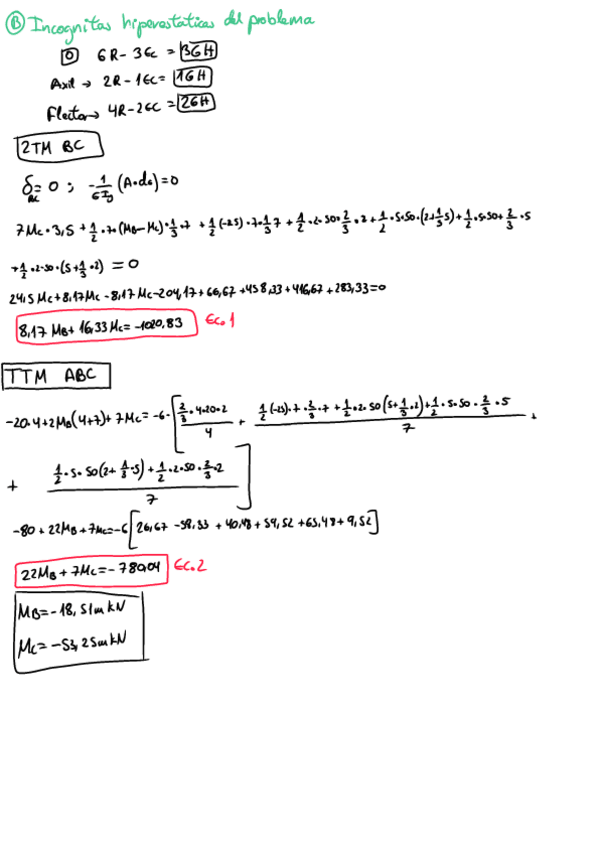 Ⓑ Incognitas hiperestaticas del problema
0 6R - 3Ec = 3GH
Axil → 2R - 1Ec = 1GH
Flector → 4R - 2Ec = 2GH
2TM BC
δBC = 0 ; -1/EIz (A·dG) = 0
7Mc·3,5 + 1/2·7·(MB-Mc)·1/3·7 + 1/2(-25)·7·1/3·7 + 1/2·2·50·2/3·2 + 1/2·5·50·(2+1/3·5) + 1/2·5·50·2/3·5
+ 1/2·2·50·(5+1/3·2) = 0
24,5Mc + 8,17Mc - 8,17Mc - 204,17 + 66,67 + 458,33 + 416,67 + 283,33 = 0
8,17 MB + 16,33 Mc = -1020,83 Ec.1
TTM ABC
-20·4 + 2MB(4+7) + 7Mc = -6·[ (2/3·4·20·2)/4 + (1/2(-25)·7·2/3·7 + 1/2·2·50(5+1/3·2) + 1/2·5·50·2/3·5)/7 +
+ (1/2·5·50(2+1/3·5) + 1/2·2·50·2/3·2)/7 ]
-80 + 22MB + 7Mc = -6[26,67 - 58,33 + 40,48 + 59,52 + 65,48 + 9,52]
22MB + 7Mc = -780,04 Ec.2
MB = -18,51mkN
Mc = -53,25mkN